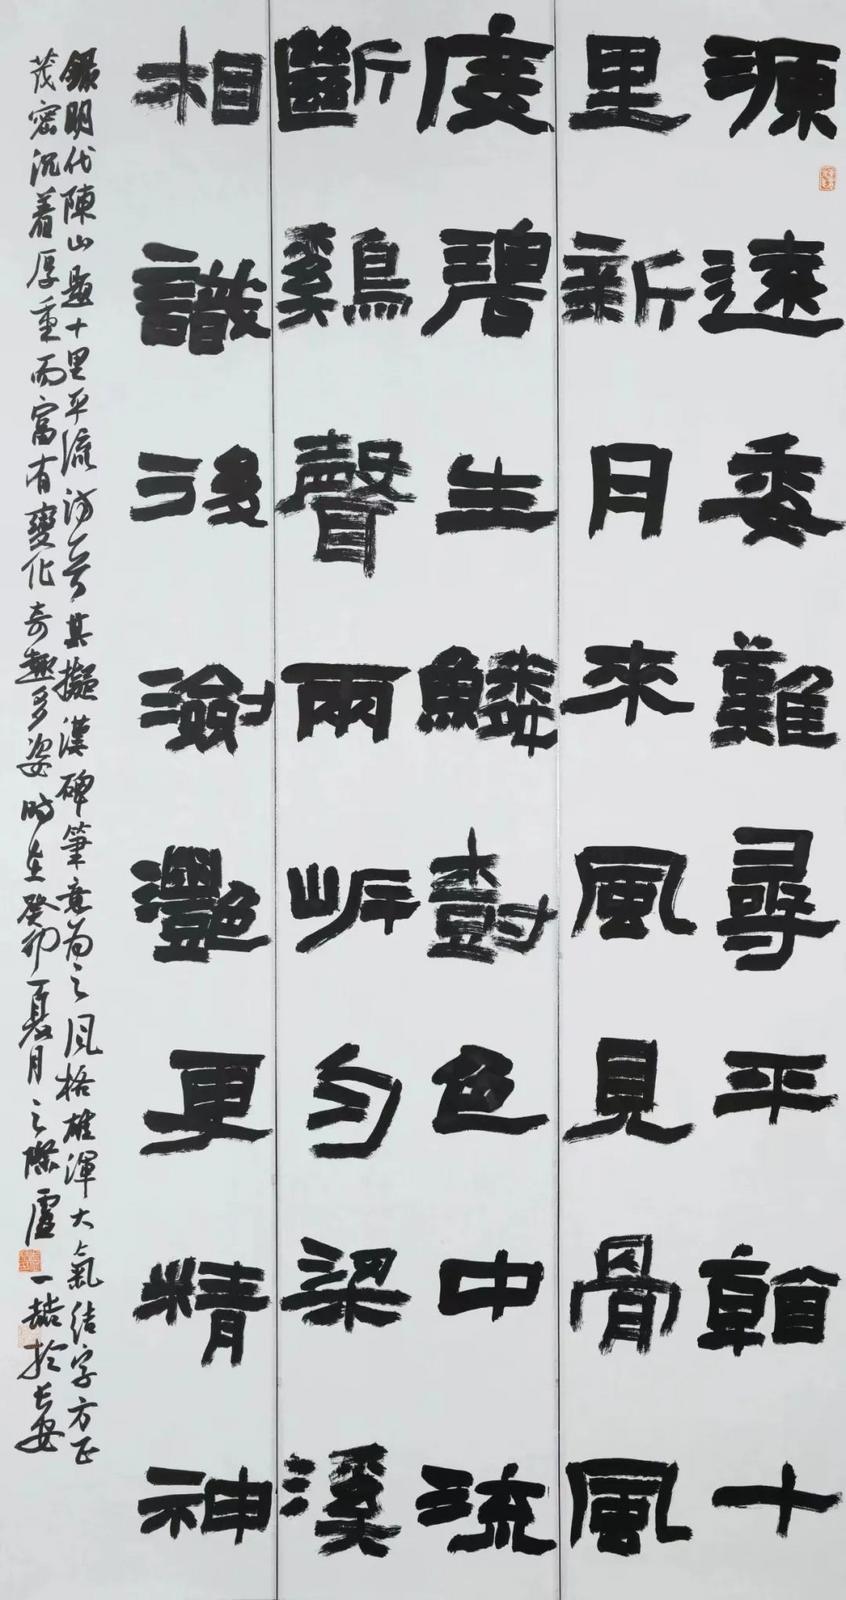 源遠委難尋平十
里新月來風見骨風
度碧生鱗樹色中流
斷鷄聲兩岸勻梁溪
相識後瀲灧更精神
錄明代陳山題十里平流詩一首其擬漢碑筆意為之風格雄渾大氣結字方正
茂密沉着厚重而富有變化奇趣多姿時在癸卯夏月之際盧一喆於長安